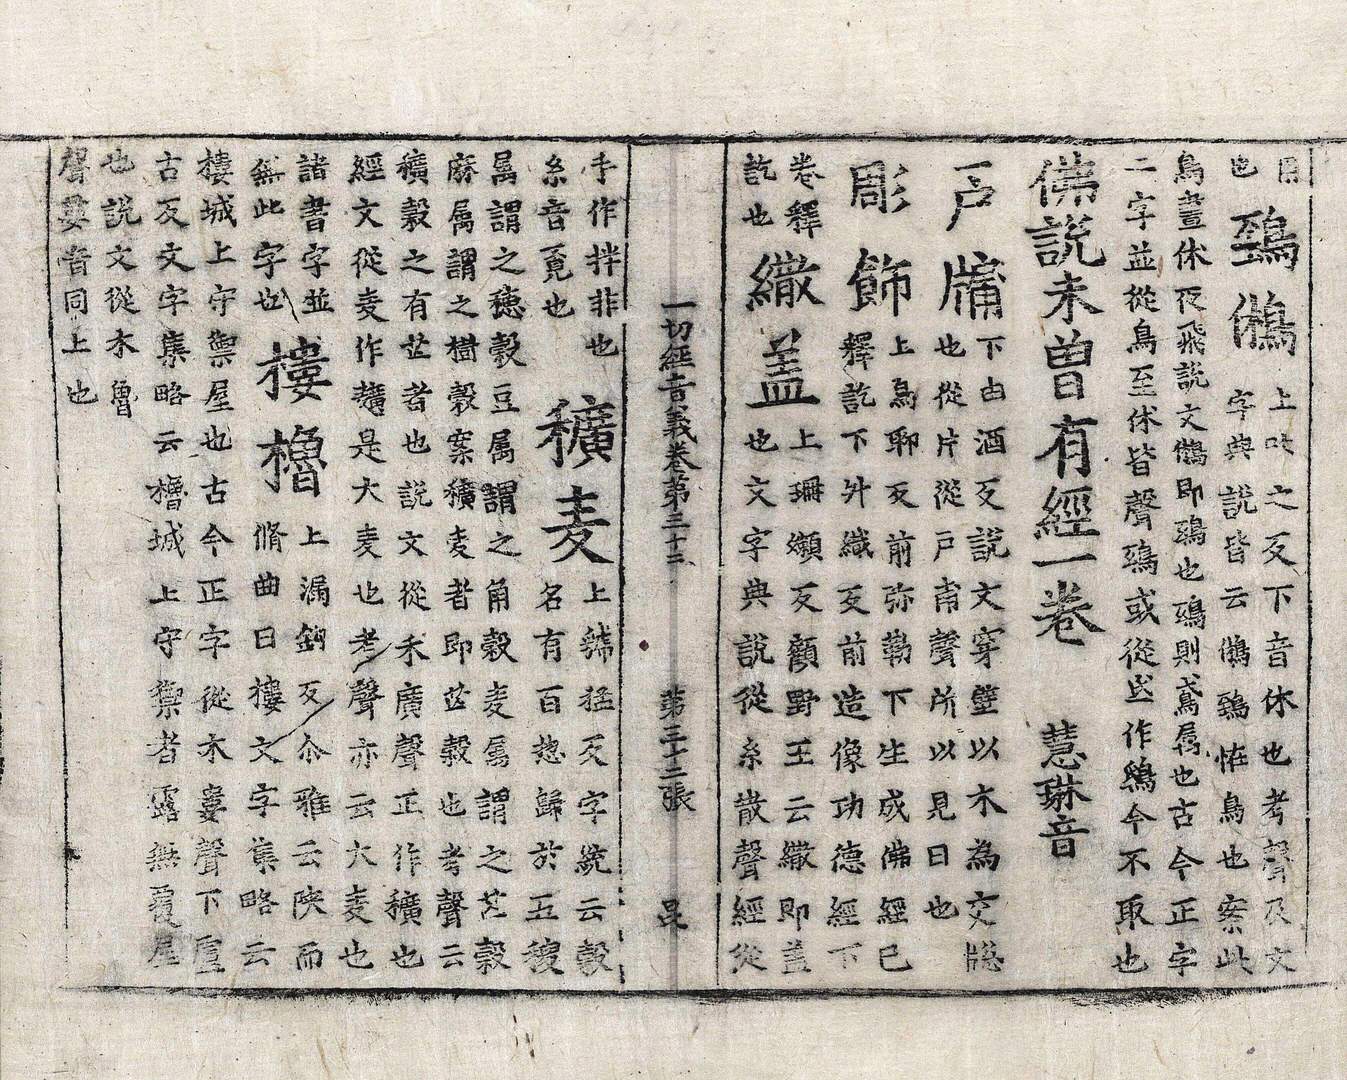 也
鵄鵂
上叱之反下音休也考聲及文
字典說皆云鵂鵄恠鳥也案此
鳥晝休夜飛說文鵂即鵄也鵄則鳶属也古今正字
二字並從鳥至休皆聲鵄或從氐作鴟今不取也
佛說未曾有經一卷 慧琳音
戶牗
下由酒反說文穿壁以木為交牎
也從片從戶甫聲所以見日也
彫飾
上鳥聊反前弥勒下生成佛經已
釋訖下升織反前造像功德經下
卷釋
訖也
繖蓋
上珊嬾反顧野王云繖即蓋
也文字典說從糸散聲經從
一切經音義卷第三十二 第三十二張 旻
手作拌非也
糸音覓也
穬麦
上虢猛反字統云穀
名有百惣歸於五稷
属謂之穗穀豆属謂之角穀麦属謂之芒穀
麻属謂之樹穀案穬麦者即芒穀也考聲云
穬穀之有芒者也說文從禾廣聲正作穬也
經文從麦作䵃是大麦也考聲亦云大麦也
諸書字並
無此字也
樓櫓
上漏鉤反尒雅云陜而
脩曲曰樓文字集略云
樓城上守禦屋也古今正字從木婁聲下盧
古反文字集略云櫓城上守禦者露無覆屋
也說文從木魯
聲婁音同上也